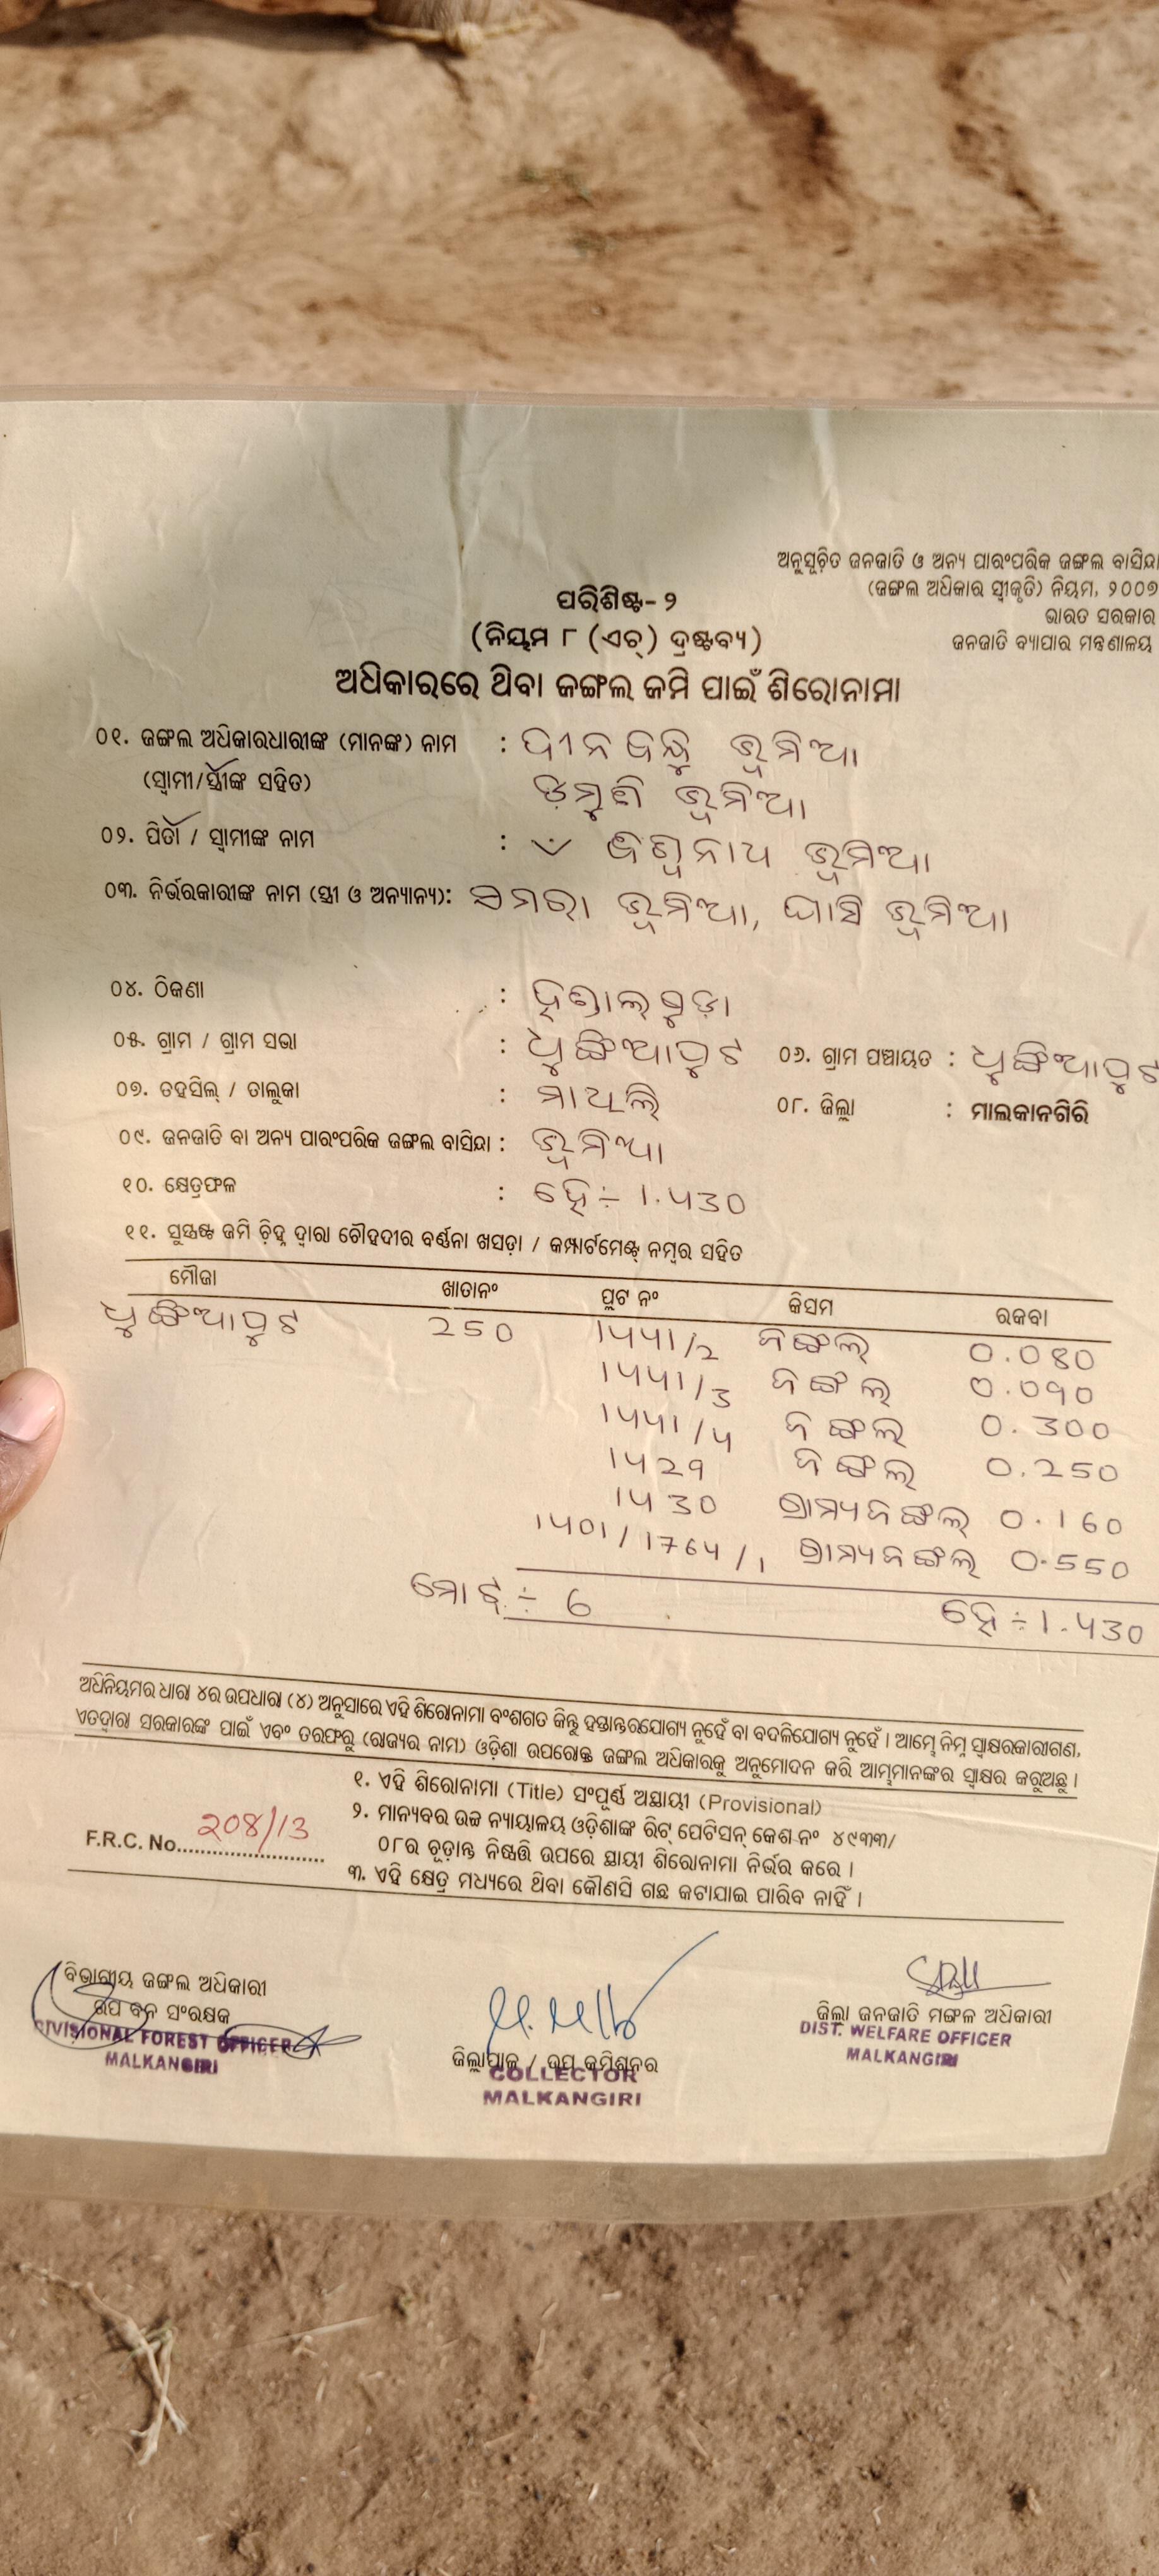 ଅନୁସୂଚିତ ଜନଜାତି ଓ ଅନ୍ୟ ପାରଂପରିକ ଜଙ୍ଗଲ ବାସିନ୍ଦା
(ଜଙ୍ଗଲ ଅଧିକାର ସ୍ୱୀକୃତି) ନିୟମ, ୨୦୦୭
ଭାରତ ସରକାର
ଜନଜାତି ବ୍ୟାପାର ମନ୍ତ୍ରଣାଳୟ
ପରିଶିଷ୍ଟ- ୨
(ନିୟମ ୮ (ଏଚ୍) ଦ୍ରଷ୍ଟବ୍ୟ)
ଅଧିକାରରେ ଥିବା ଜଙ୍ଗଲ ଜମି ପାଇଁ ଶିରୋନାମା
୦୧. ଜଙ୍ଗଲ ଅଧିକାରଧାରୀଙ୍କ (ମାନଙ୍କ) ନାମ : ଦୀନବନ୍ଧୁ ଭୂମିଆ
(ସ୍ୱାମୀ/ସ୍ତ୍ରୀଙ୍କ ସହିତ) ଡ଼ିମୁଣି ଭୂମିଆ
୦୨. ପିତା / ସ୍ୱାମୀଙ୍କ ନାମ : ବିଶ୍ୱନାଥ ଭୂମିଆ
୦୩. ନିର୍ଭରକାରୀଙ୍କ ନାମ (ସ୍ତ୍ରୀ ଓ ଅନ୍ୟାନ୍ୟ): ସମରା ଭୂମିଆ, ଘାସି ଭୂମିଆ
୦୪. ଠିକଣା : ହିଣ୍ଡାଲଗୁଡ଼ା
୦୫. ଗ୍ରାମ / ଗ୍ରାମ ସଭା : ଧୁଙ୍ଗିଆପୁଟ ୦୬. ଗ୍ରାମ ପଞ୍ଚାୟତ : ଧୁଙ୍ଗିଆପୁଟ
୦୭. ତହସିଲ୍ / ତାଲୁକା : ମାଥିଲି ୦୮. ଜିଲ୍ଲା : ମାଲକାନଗିରି
୦୯. ଜନଜାତି ବା ଅନ୍ୟ ପାରଂପରିକ ଜଙ୍ଗଲ ବାସିନ୍ଦା : ଭୂମିଆ
୧୦. କ୍ଷେତ୍ରଫଳ : ହେ ÷ 1.430
୧୧. ସୁସ୍ପଷ୍ଟ ଜମି ଚିହ୍ନ ଦ୍ୱାରା ଚୌହଦୀର ବର୍ଣ୍ଣନା ଖସଡ଼ା / କମ୍ପାର୍ଟମେଣ୍ଟ୍ ନମ୍ବର ସହିତ
ମୌଜା ଖାତାନଂ ପ୍ଲଟ ନଂ କିସମ ରକବା
ଧୁଙ୍ଗିଆପୁଟ 250 1441/2 ଜଙ୍ଗଲ 0.080
1441/3 ଜଙ୍ଗଲ 0.090
1441/4 ଜଙ୍ଗଲ 0.300
1429 ଜଙ୍ଗଲ 0.250
1430 ଗ୍ରାମ୍ୟଜଙ୍ଗଲ 0.160
1401/1764/1 ଗ୍ରାମ୍ୟଜଙ୍ଗଲ 0.550
ମୋଟ ÷ 6 ହେ ÷ 1.430
ଅଧିନିୟମର ଧାରା ୪ର ଉପଧାରା (୪) ଅନୁସାରେ ଏହି ଶିରୋନାମା ବଂଶଗତ କିନ୍ତୁ ହସ୍ତାନ୍ତରଯୋଗ୍ୟ ନୁହେଁ ବା ବଦଳିଯୋଗ୍ୟ ନୁହେଁ । ଆମ୍ଭେ ନିମ୍ନ ସ୍ୱାକ୍ଷରକାରୀଗଣ,
ଏତଦ୍ଦ୍ୱାରା ସରକାରଙ୍କ ପାଇଁ ଏବଂ ତରଫରୁ (ରାଜ୍ୟର ନାମ) ଓଡ଼ିଶା ଉପରୋକ୍ତ ଜଙ୍ଗଲ ଅଧିକାରକୁ ଅନୁମୋଦନ କରି ଆମ୍ଭମାନଙ୍କର ସ୍ୱାକ୍ଷର କରୁଅଛୁ ।
୧. ଏହି ଶିରୋନାମା (Title) ସଂପୂର୍ଣ୍ଣ ଅସ୍ଥାୟୀ (Provisional)
୨. ମାନ୍ୟବର ଉଚ୍ଚ ନ୍ୟାୟାଳୟ ଓଡ଼ିଶାଙ୍କ ରିଟ୍ ପେଟିସନ୍ କେଶ ନଂ ୪୯୩୩/
୦୮ର ଚୂଡ଼ାନ୍ତ ନିଷ୍ପତ୍ତି ଉପରେ ସ୍ଥାୟୀ ଶିରୋନାମା ନିର୍ଭର କରେ ।
୩. ଏହି କ୍ଷେତ୍ର ମଧ୍ୟରେ ଥିବା କୌଣସି ଗଛ କଟାଯାଇ ପାରିବ ନାହିଁ ।
F.R.C. No. 208/13
ବିଭାଗୀୟ ଜଙ୍ଗଲ ଅଧିକାରୀ
ଉପ ବନ ସଂରକ୍ଷକ
DIVISIONAL FOREST OFFICER
MALKANGIRI
ଜିଲ୍ଲାପାଳ / ଉପ କମିଶନର
COLLECTOR
MALKANGIRI
ଜିଲ୍ଲା ଜନଜାତି ମଙ୍ଗଳ ଅଧିକାରୀ
DIST. WELFARE OFFICER
MALKANGIRI